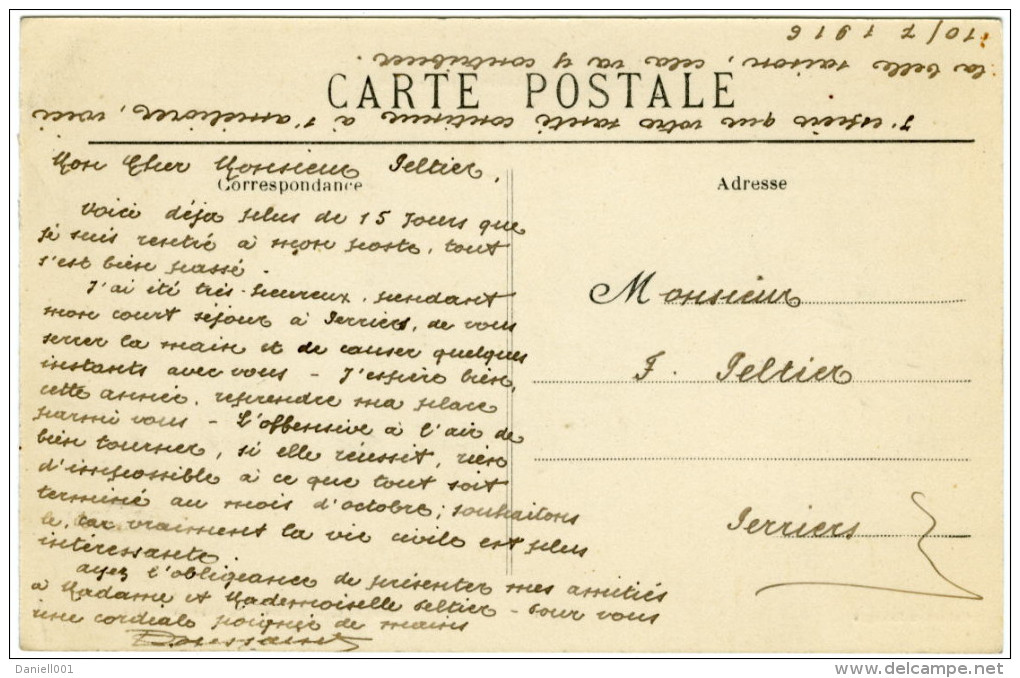 CARTE POSTALE
Correspondance
Adresse
Mon Cher Monsieur Peltier,
Voici déja plus de 15 Jours que
je suis rentré à mon poste, tout
s'est bien passé.
J'ai été très heureux, pendant
mon court séjour à Perriers, de vous
serrer la main et de causer quelques
instants avec vous - J'espère bien,
cette année, reprendre ma place
parmi vous - L'offensive à l'air de
bien tourner, si elle réussit, rien
d'impossible à ce que tout soit
terminé au mois d'octobre; souhaitons
le, car vraiment la vie civile est plus
intéressante.
ayez l'obligeance de présenter mes amitiés
à Madame et Mademoiselle Peltier - Pour vous
une cordiale poignée de mains
J'espère que votre santé continue à s'améliorer, voici
la belle saison, cela va y contribuer.
10/7 1916
Monsieur
F. Peltier
Perriers
Daniell001
delcampe.net